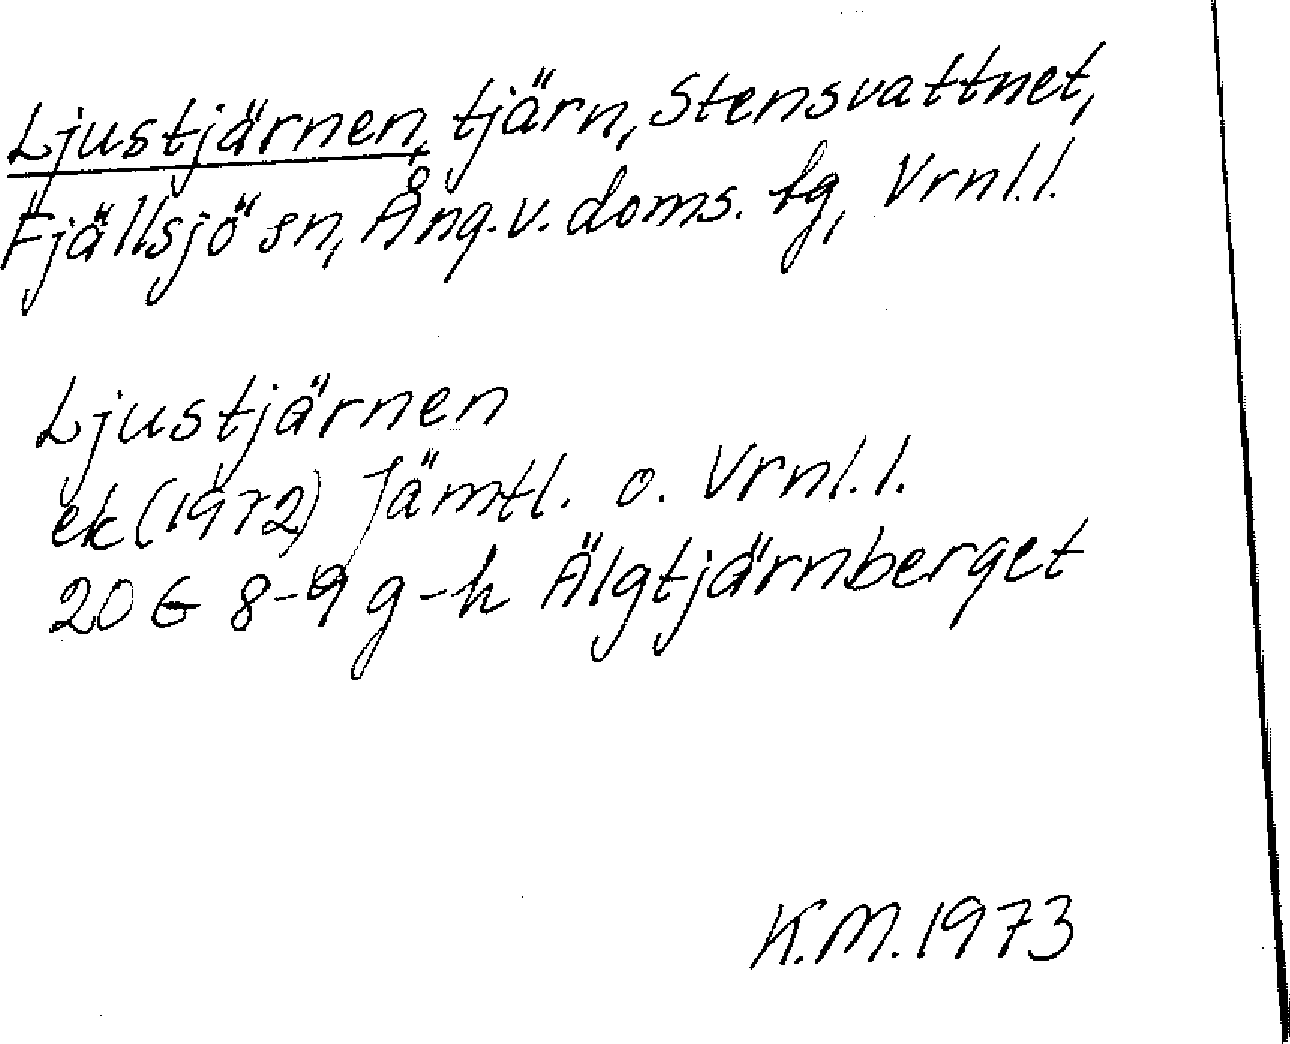 Ljustjärnen, tjärn, Stensvattnet,
Fjällsjö sn, Ång.v. doms. tg, Vrnl.l.
Ljustjärnen
ek (1972) Jämtl. o. Vrnl.l.
20 G 8-9 g-h Älgtjärnberget
K.M. 1973